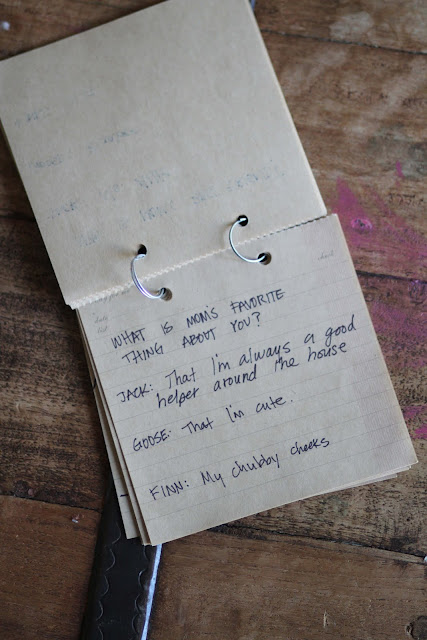 WHAT IS MOM'S FAVORITE
THING ABOUT YOU?
JACK: That I'm always a good
helper around the house
GOOSE: That I'm cute.
FINN: My chubby cheeks